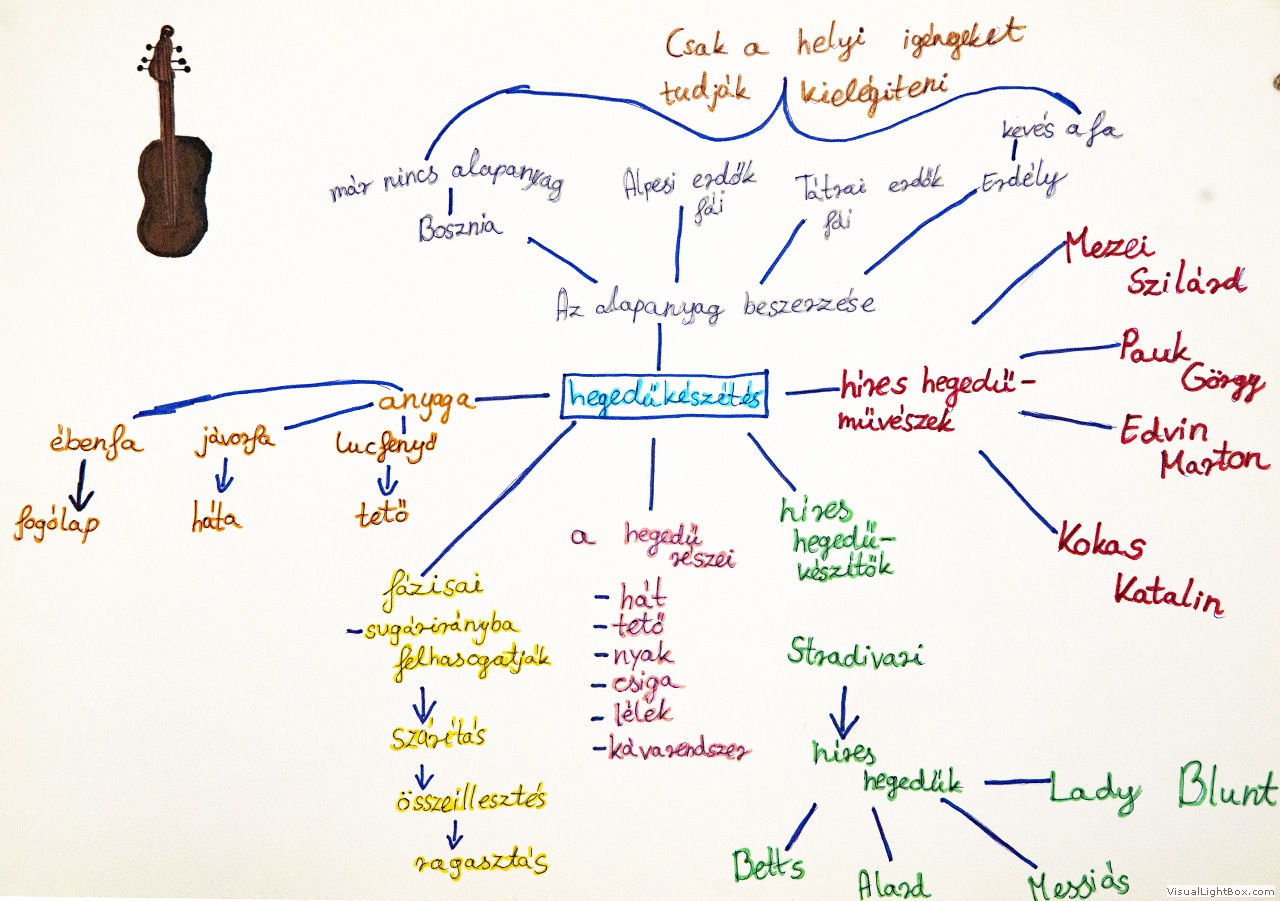 Csak a helyi igényeket
tudják kielégíteni
kevés a fa
már nincs alapanyag
Alpesi erdők
fái
Tátrai erdők
fái
Erdély
Bosznia
Az alapanyag beszerzése
Mezei
Szilárd
Pauk
György
Edvin
Marton
Kokas
Katalin
híres hegedű-
művészek
hegedűkészítés
anyaga
ébenfa
jávorfa
lucfenyő
fogólap
háta
tető
fázisai
-sugárirányba
felhasogatják
szárítás
összeillesztés
ragasztás
a hegedű
részei
- hát
- tető
- nyak
- csiga
- lélek
- kávarendszer
híres
hegedű-
készítők
Stradivari
híres
hegedűk
Lady Blunt
Betts
Alard
Messiás
VisualLightBox.com